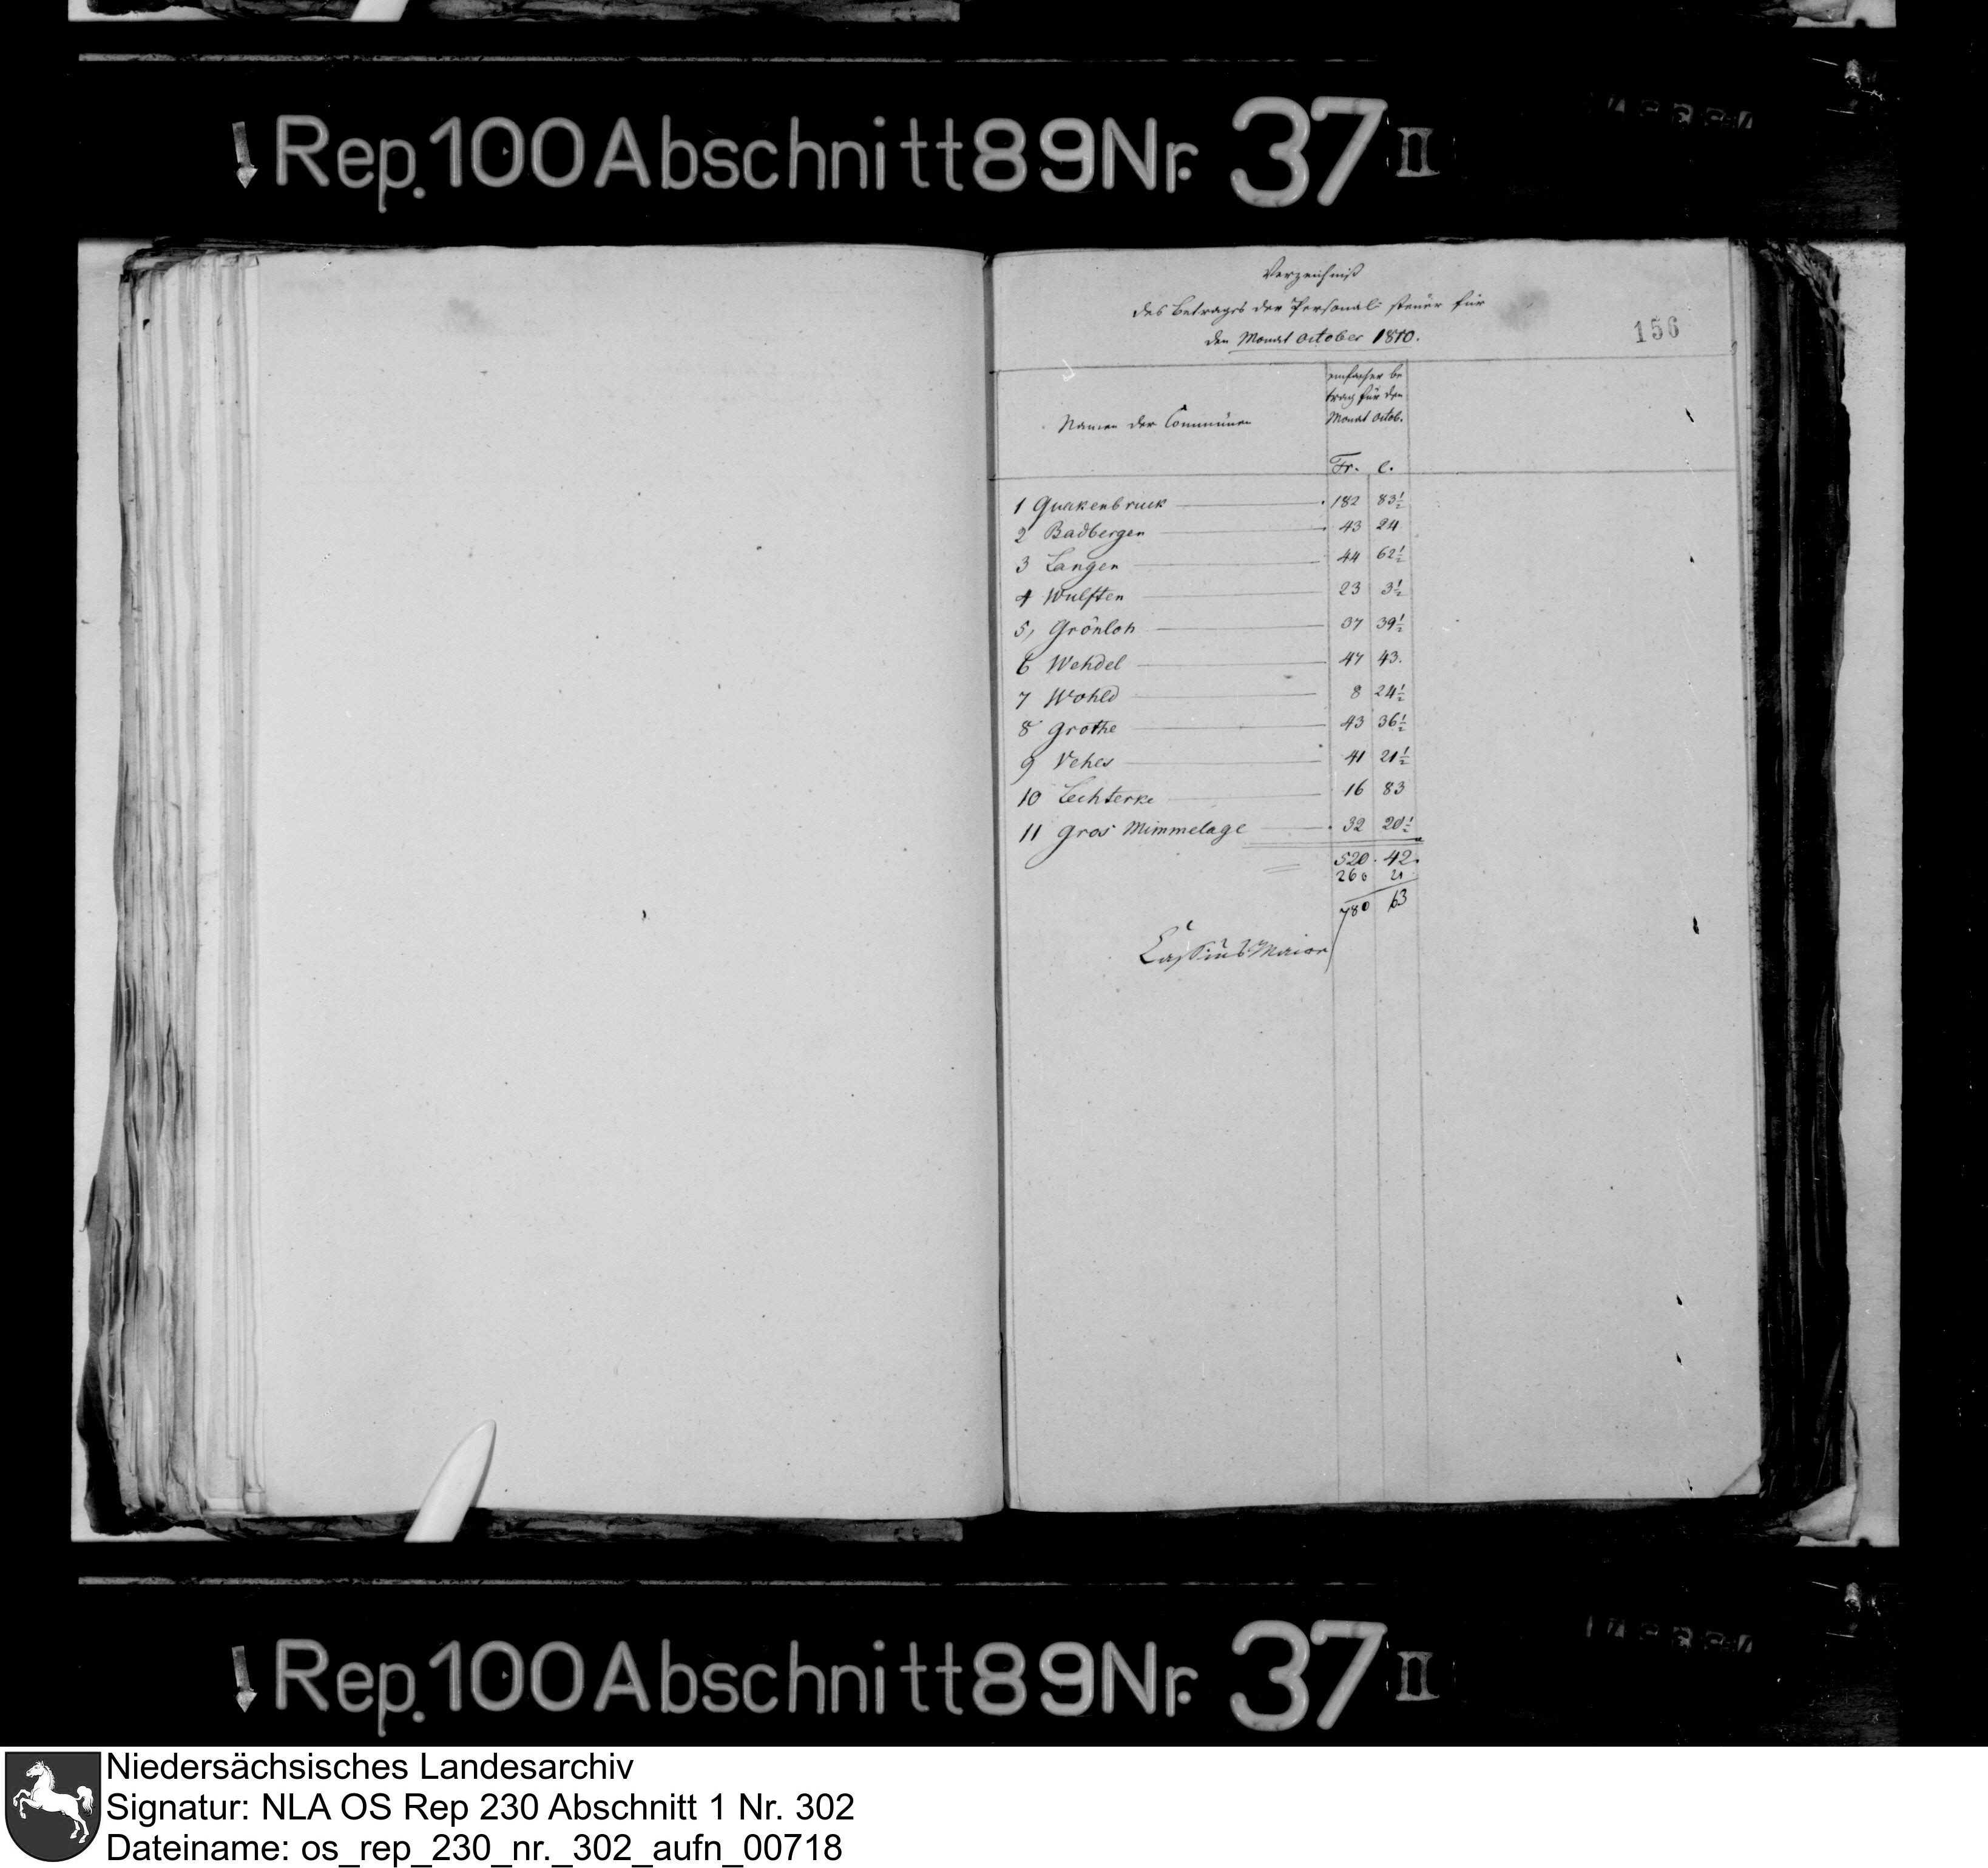 Rep. 100 Abschnitt 89 Nr. 37 II
Verzeichniß
des Betrages der Personal-steuer für
den Monat October 1810.
156
Namen der Communen
einfacher be
trag für den
Monat Octob.
Fr. C.
1 Quakenbruck 182 83½
2 Badbergen 43 24
3 Langen 44 62½
4 Wulften 23 3½
5, Grönloh 37 39½
6 Wehdel 47 43.
7 Wohld 8 24½
8 Grothe 43 36½
9 Vehes 41 21½
10 Lechterke 16 83
11 Gros Mimmelage 32 20½
520. 42.
260 21
780 63
Cassius Maior
Rep. 100 Abschnitt 89 Nr. 37 II
Niedersächsisches Landesarchiv
Signatur: NLA OS Rep 230 Abschnitt 1 Nr. 302
Dateiname: os_rep_230_nr._302_aufn_00718